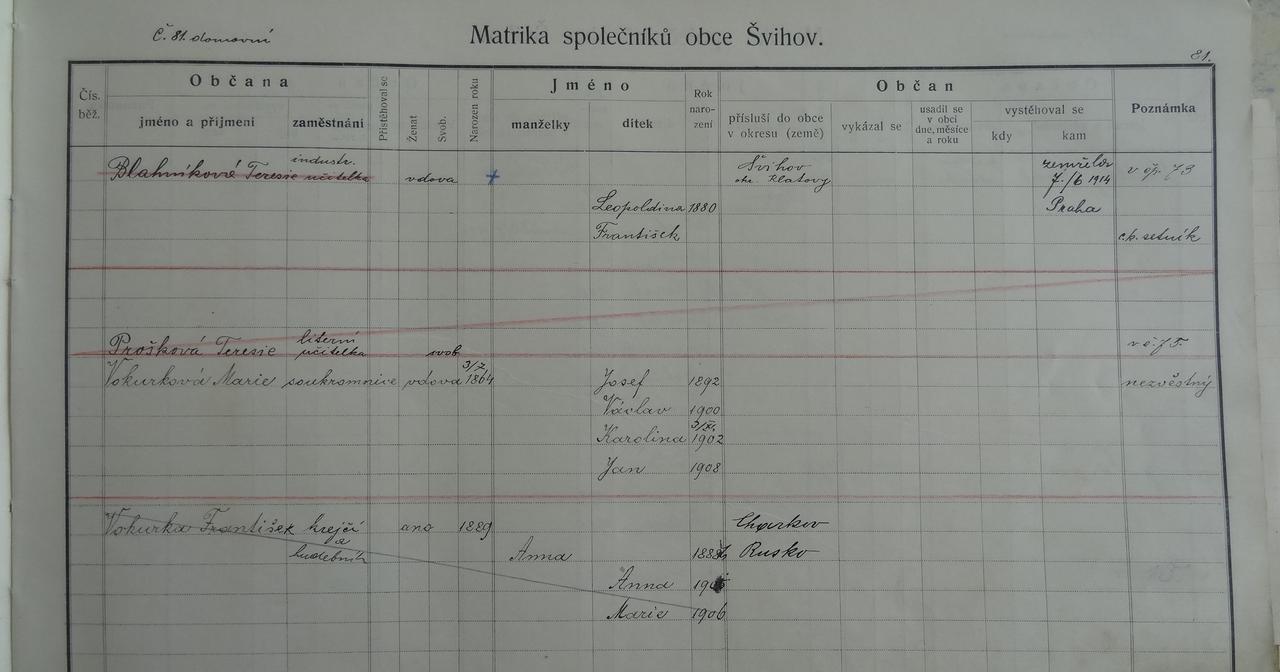 Č. 81. domovní
Matrika společníků obce Švihov.
81.
Čís. běž.
Občana
jméno a přijmení
zaměstnání
Přistěhoval se
Ženat
Svob.
Narozen roku
Jméno
manželky
dítek
Rok naro- zení
Občan
přísluší do obce v okresu (země)
vykázal se
usadil se v obci dne, měsíce a roku
vystěhoval se
kdy
kam
Poznámka
industr.
Blahníková Teresie učitelka vdova + Švihov zemřela v čp. 73
okr. Klatovy 7./6 1914
Leopoldina 1880 Praha
František c.k. setník
literní
Prošková Teresie učitelka svob.
3/7.
Vokurková Marie soukromnice vdova 1864 Josef 1892 nezvěstný
Václav 1900
3/XI.
Karolina 1902
Jan 1908
Vokurka František krejčí ano 1889 Charkov
a
hudebník Anna Rusko
Anna
Marie 1906